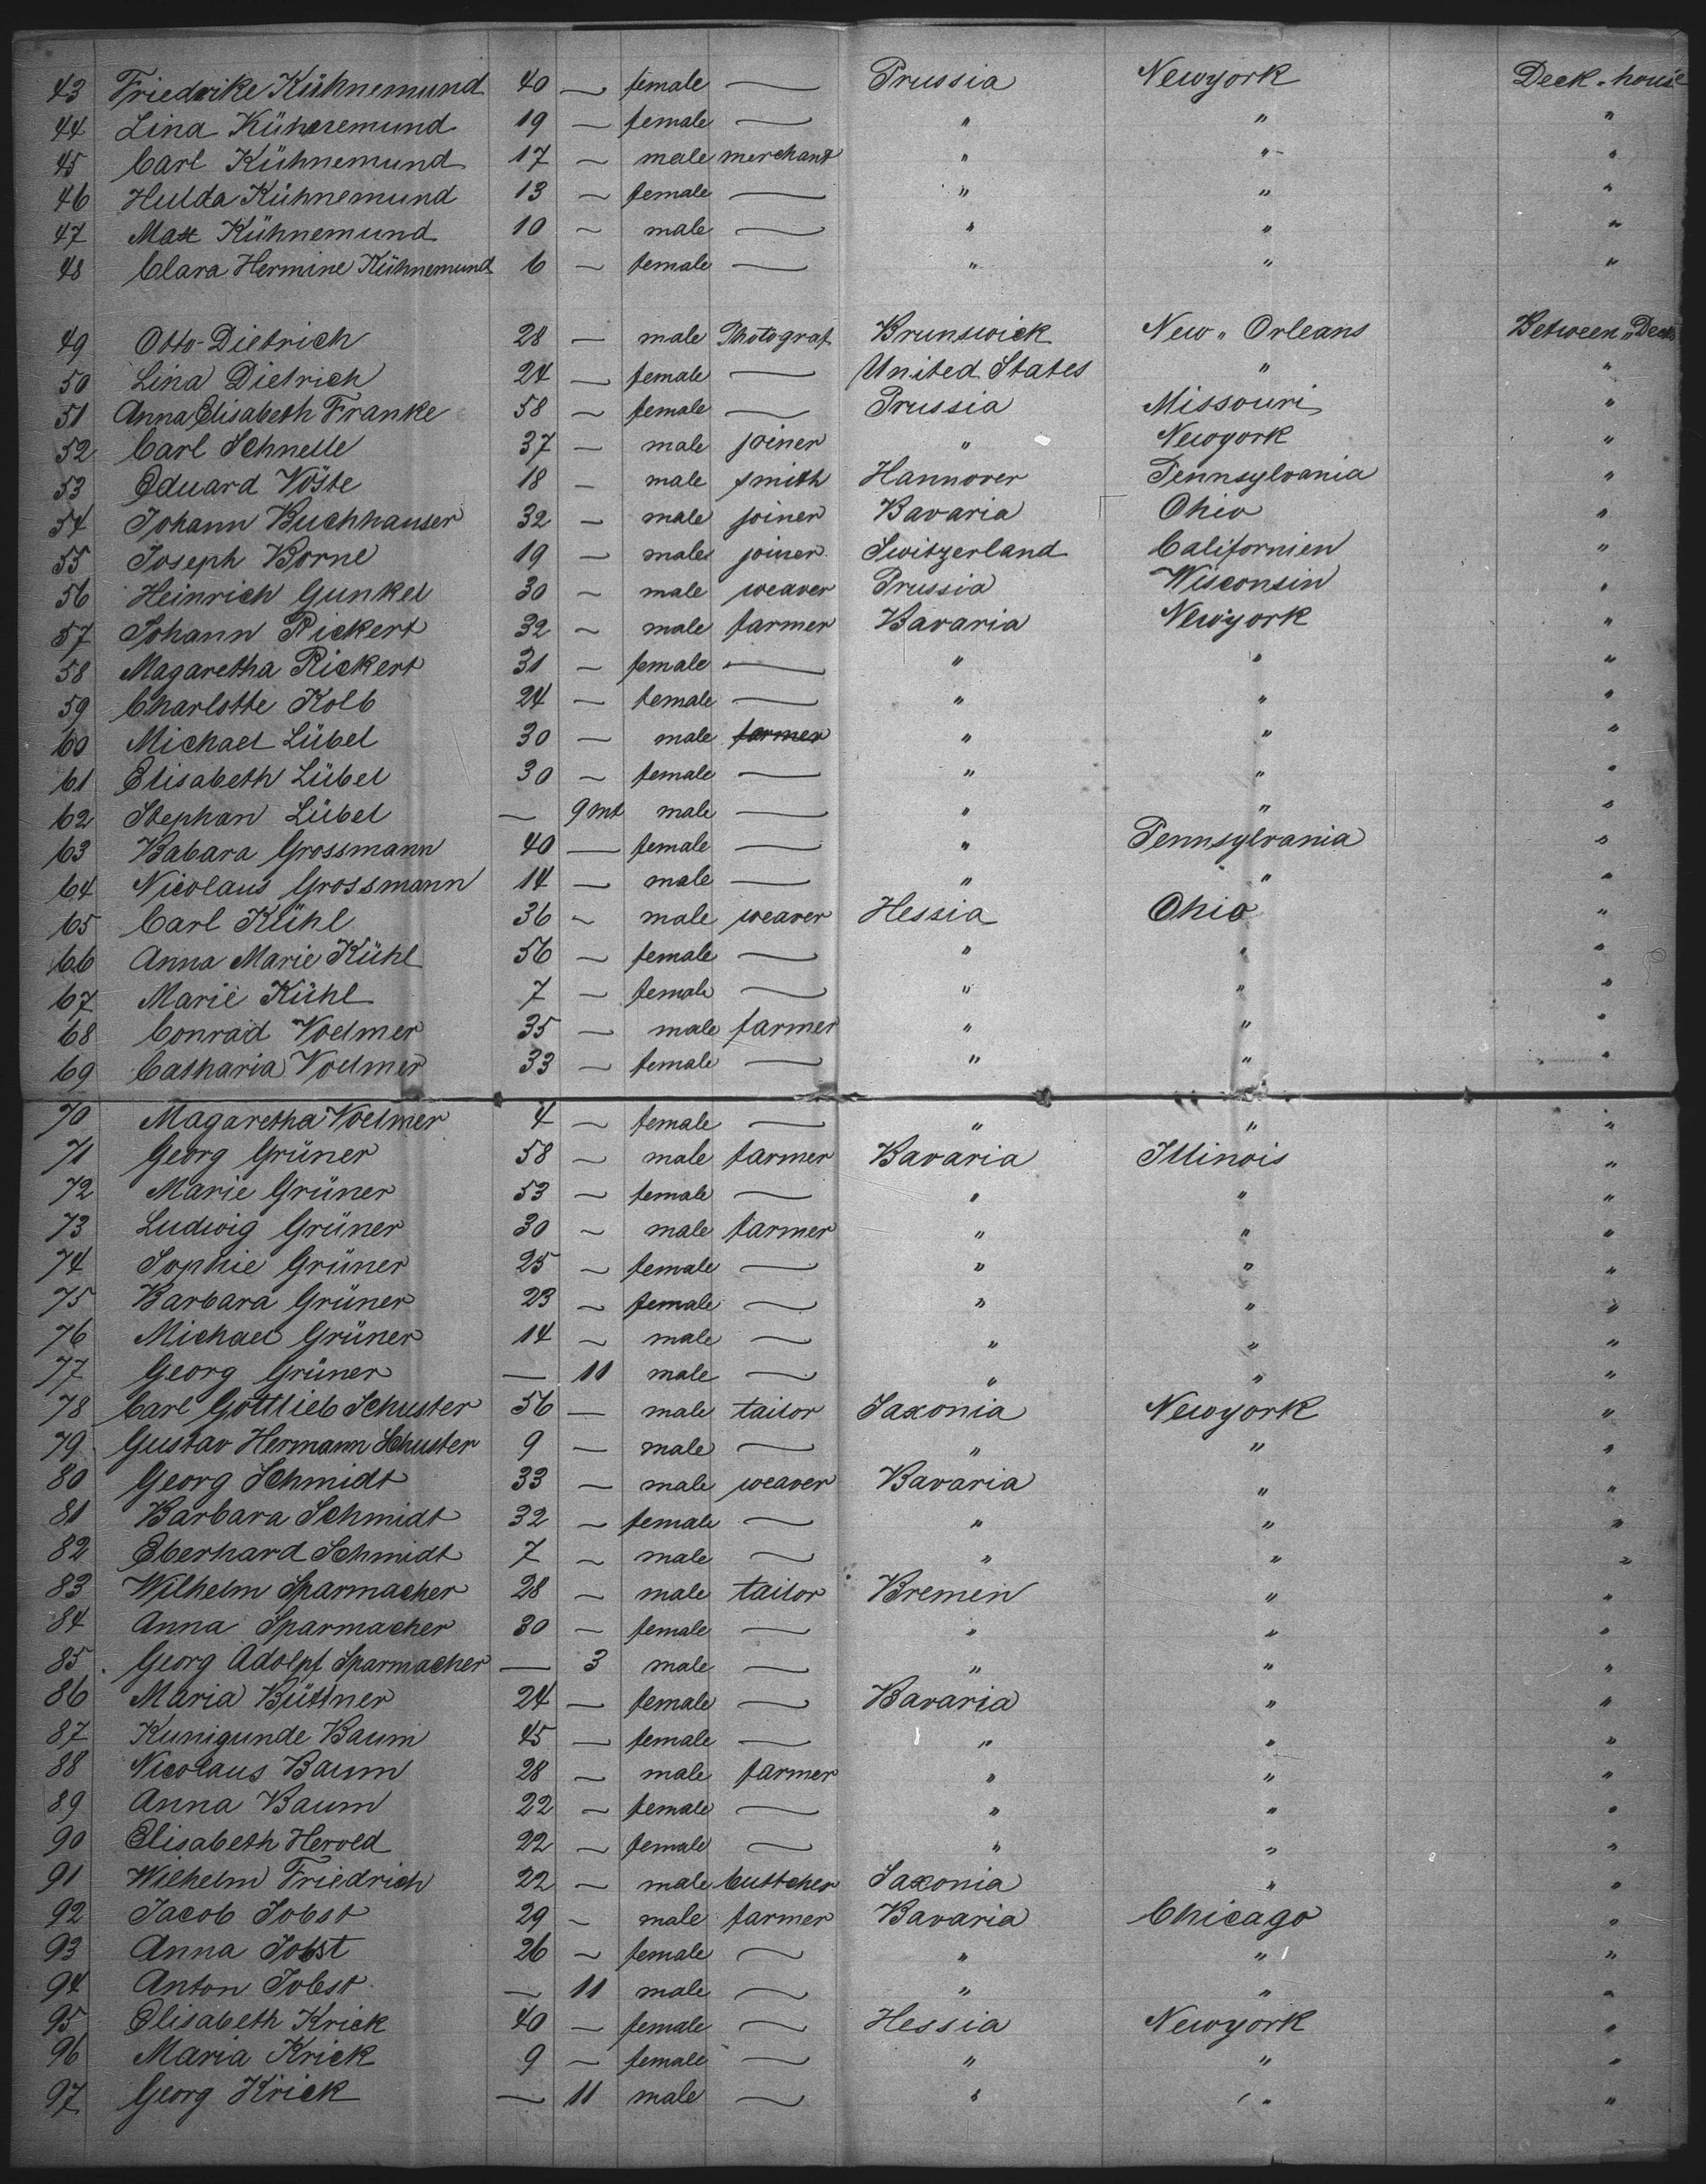 43 Friedrike Kühnemund 40 — female — Prussia Newyork Deck-house
44 Lina Kühnemund 19 — female — " " "
45 Carl Kühnemund 17 — male merchant " " "
46 Hulda Kühnemund 13 — female — " " "
47 Max Kühnemund 10 — male — " " "
48 Clara Hermine Kühnemund 6 — female — " " "
49 Otto Dietrich 28 — male Photograf Brunswick New-Orleans Between-Deck
50 Lina Dietrich 24 — female — United States " "
51 Anna Elisabeth Franke 58 — female — Prussia Missouri "
52 Carl Schnelle 37 — male joiner " Newyork "
53 Eduard Vöste 18 — male smith Hannover Pennsylvania "
54 Johann Buchhauser 32 — male joiner Bavaria Ohio "
55 Joseph Borne 19 — male joiner Switzerland Californien "
56 Heinrich Gunkel 30 — male weaver Prussia Wisconsin "
57 Johann Rickert 32 — male farmer Bavaria Newyork "
58 Magaretha Rickert 31 — female — " " "
59 Charlotte Kolb 24 — female — " " "
60 Michael Lübel 30 — male farmer " " "
61 Elisabeth Lübel 30 — female — " " "
62 Stephan Lübel — 9 mt male — " " "
63 Babara Grossmann 40 — female — " Pennsylvania "
64 Nicolaus Grossmann 14 — male — " " "
65 Carl Kühl 36 — male weaver Hessia Ohio "
66 Anna Marie Kühl 56 — female — " " "
67 Marie Kühl 7 — female — " " "
68 Conrad Voelmer 35 — male farmer " " "
69 Catharia Voelmer 33 — female — " " "
70 Magaretha Voelmer 4 — female — " " "
71 Georg Grüner 58 — male farmer Bavaria Illinois "
72 Marie Grüner 53 — female — " " "
73 Ludwig Grüner 30 — male farmer " " "
74 Sophie Grüner 25 — female — " " "
75 Barbara Grüner 23 — female — " " "
76 Michael Grüner 14 — male — " " "
77 Georg Grüner — 11 male — " " "
78 Carl Gottlieb Schuster 56 — male tailor Saxonia Newyork "
79 Gustav Hermann Schuster 9 — male — " " "
80 Georg Schmidt 33 — male weaver Bavaria " "
81 Barbara Schmidt 32 — female — " " "
82 Eberhard Schmidt 7 — male — " " "
83 Wilhelm Sparmacher 28 — male tailor Bremen " "
84 Anna Sparmacher 30 — female — " " "
85 Georg Adolpf Sparmacher — 3 male — " " "
86 Maria Büttner 24 — female — Bavaria " "
87 Kunigunde Baum 45 — female — " " "
88 Nicolaus Baum 28 — male farmer " " "
89 Anna Baum 22 — female — " " "
90 Elisabeth Herold 22 — female — " " "
91 Wilhelm Friedrich 22 — male buttcher Saxonia " "
92 Jacob Jobst 29 — male farmer Bavaria Chicago "
93 Anna Jobst 26 — female — " " "
94 Anton Jobst — 11 male — " " "
95 Elisabeth Krick 40 — female — Hessia Newyork "
96 Maria Krick 9 — female — " " "
97 Georg Krick — 11 male — " " "